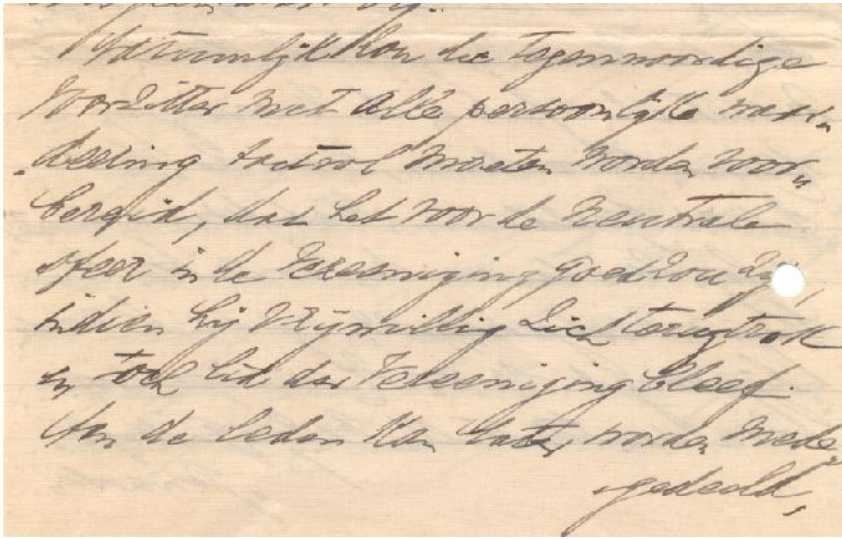 Natuurlijk kon de tegenwoordige
Voorzitter met alle persoonlijke waar„
„deering tactvol moeten worden voor„
bereid, dat het voor de neutrale
sfeer in de Vereeniging goed zou zijn,
indien hij vrijwillig zich terugtrok
en toch lid der Vereeniging bleef.
Aan de leden kan later worden mede„
gedeeld,